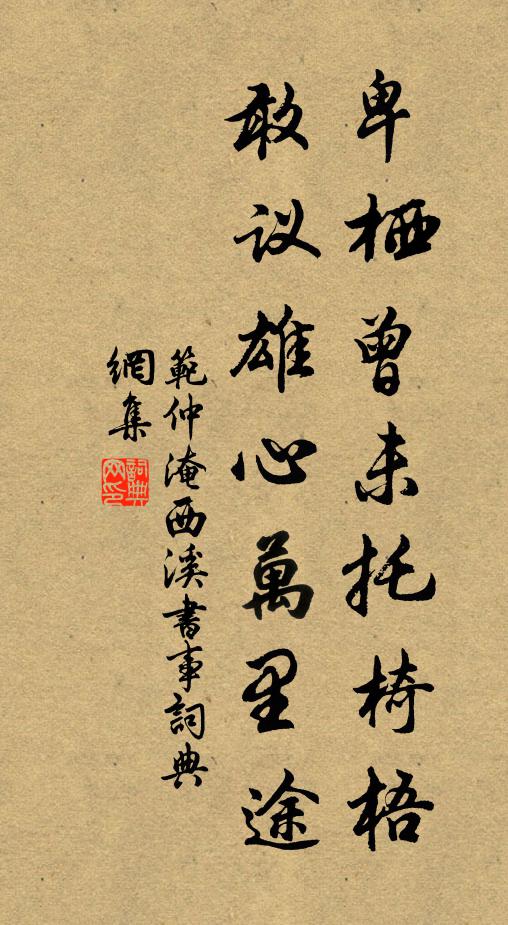 卑栖曾未托椅梧
敢议雄心萬里途
範仲淹西溪書事詞典
網集
詞典网印